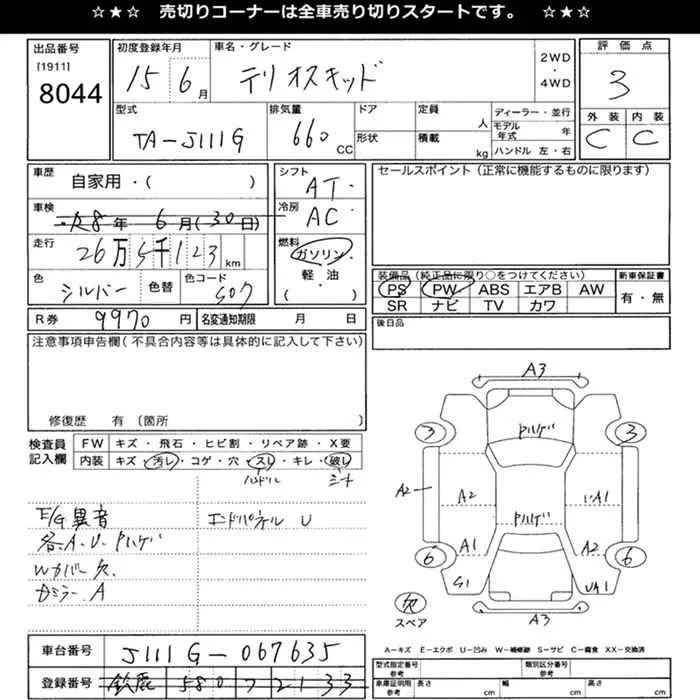 ☆★☆ 売切りコーナーは全車売り切りスタートです。 ☆★☆
出品番号
[1911]
8044
初度登録年月
15 6月
車名・グレード
テリオスキッド
2WD
・
4WD
評価点
3
型式
TA-J111G
排気量
660 CC
ドア
形状
定員 人
積載 kg
ディーラー・並行
モデル年式 年
ハンドル 左・右
外装 内装
C C
車歴
自家用・( )
車検
R8年 6月(30日)
走行
26万5千123km
色
シルバー
色替
色コード
S07
シフト
AT・
冷房
AC・
燃料
ガソリン・
軽・油
( )
セールスポイント(正常に機能するものに限ります)
装備品(純正品に限り○をつけてください)
PS PW ABS エアB AW
SR ナビ TV カワ
新車保証書
有・無
R券 9970円
名変通知期限 月 日
後日品
注意事項申告欄(不具合内容等は具体的に記入して下さい)
修復歴 有〔箇所 〕
検査員記入欄
FW キズ・飛石・ヒビ割・リペア跡・X要
内装 キズ・汚レ・コゲ・穴・スレ・キレ・破レ
ハンドル シート
E/G異音
各.A.U.Pハゲ
Wカバー欠.
Dミラー.A
エンドパネル U
A3
Pハゲ
3 3
A2
A2 A1
Pハゲ
A1 A2
6 6
S1 UA1
欠
スペア
A3
A-キズ E-エクボ U-凹み W-補修跡 S-サビ C-腐食 XX-交換済
車台番号 J111G-067635
登録番号 鈴鹿 580 フ 2133
型式指定番号
参考
類別区分番号
参考
車庫証明用
参考
長さ cm
幅 cm
高さ cm